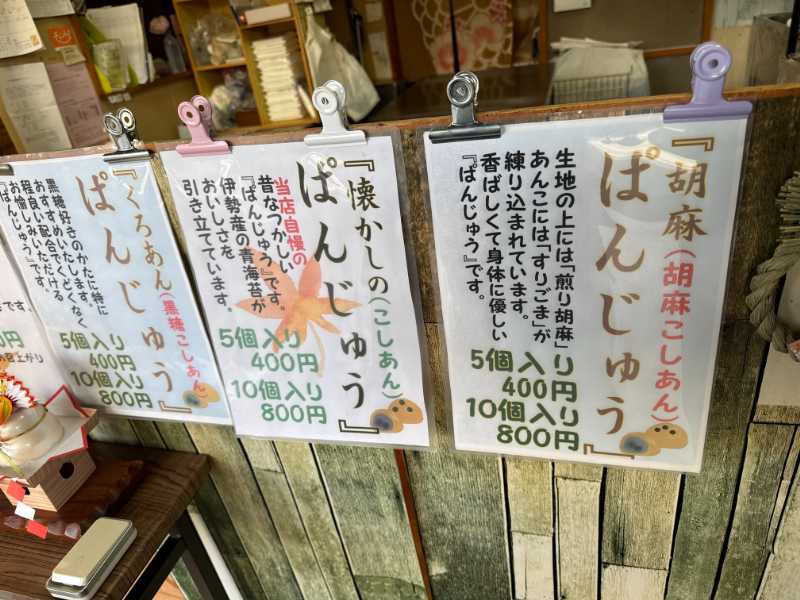 『胡麻(胡麻こしあん)
ぱんじゅう』
生地の上には「煎り胡麻」
あんこには「すりごま」が
練り込まれています。
香ばしくて身体に優しい
『ぱんじゅう』です。
5個入り
400円
10個入り
800円
『懐かしの(こしあん)
ぱんじゅう』
当店自慢の
昔なつかしい
『ぱんじゅう』です。
伊勢産の青海苔が
おいしさを
引き立てています。
5個入り
400円
10個入り
800円
『くろあん(黒糖こしあん)
ぱんじゅう』
黒糖好きのかたに特に
おすすめいたします。
程良い
『ぱんじゅう
5個入り
400円
10個入り
800円
です。
0円